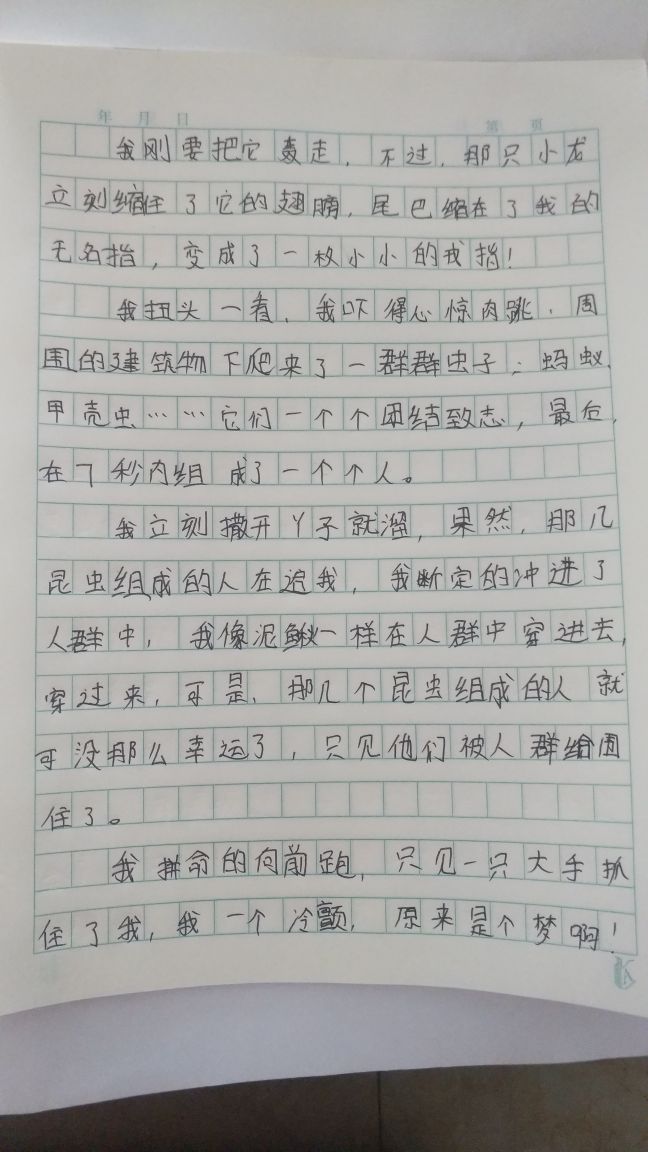 年 月 日 第 页
我刚要把它轰走，不过，那只小龙
立刻缩住了它的翅膀，尾巴缩在了我的
无名指，变成了一枚小小的戒指！
我扭头一看，我吓得心惊肉跳，周
围的建筑物下爬来了一群群虫子：蚂蚁、
甲壳虫……它们一个个团结致志，最后，
在7秒内组成了一个个人。
我立刻撒开丫子就溜，果然，那几
昆虫组成的人在追我，我断定的冲进了
人群中，我像泥鳅一样在人群中穿进去，
穿过来，可是，那几个昆虫组成的人就
可没那么幸运了，只见他们被人群给围
住了。
我拼命的向前跑，只见一只大手抓
住了我，我一个冷颤，原来是个梦啊！